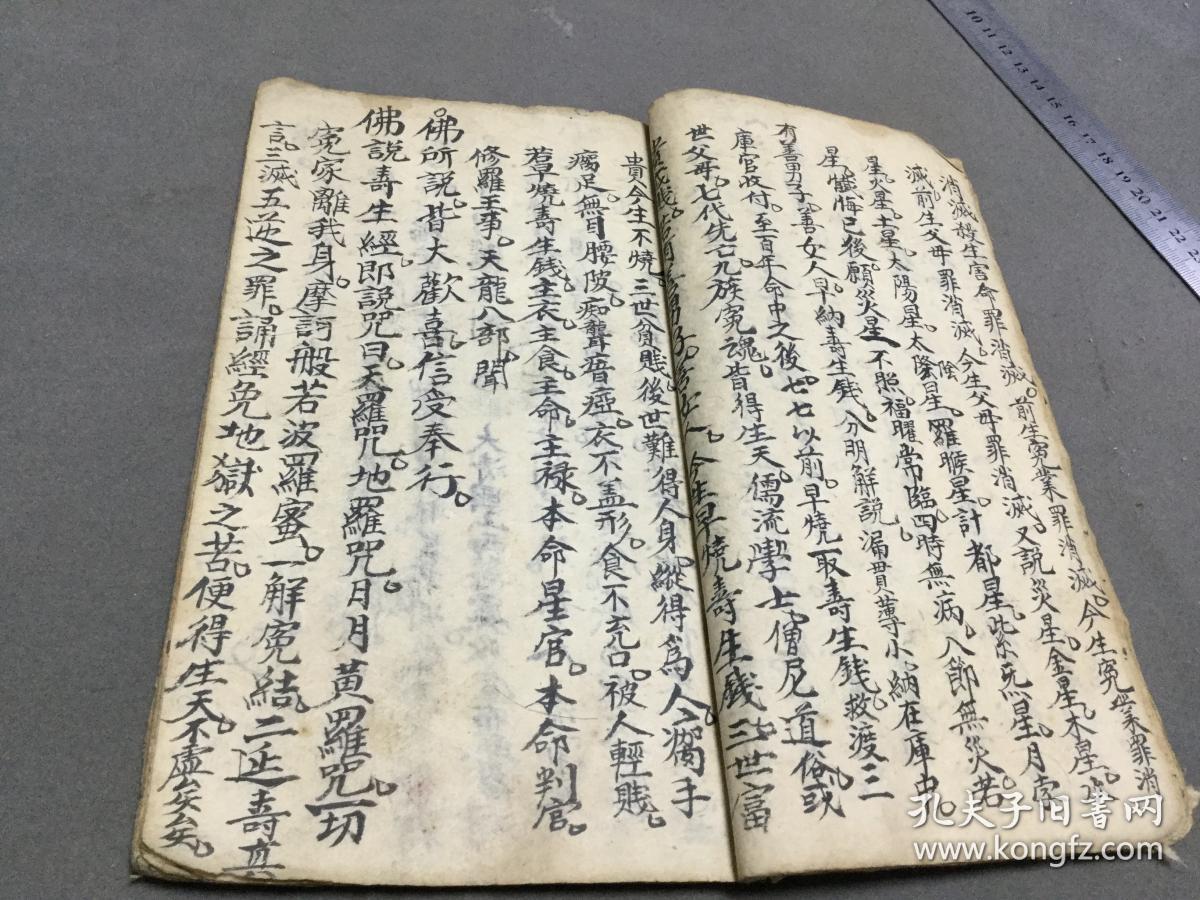 消滅殺生害命罪消滅。前生冤業罪消滅。今生冤業罪消
滅前生父母罪消滅。今生父母罪消滅。又説災星。金星。木星。水
星。火星。土星。太陽星。太隂星。羅睺星。計都星。紫炁星。月孛
星。懺悔已後。願災星不照。福曜常臨。四時無病。八節無災。若
有善男子。善女人。早納壽生錢。分明解説漏貫薄小。納在庫中。
庫官收付。至百年命中之後。七七以前。早燒取壽生錢。救渡三
世父母。七代先亡。九族冤魂。皆得生天。儒流學士。僧尼道俗。或
今生早燒壽生錢三世富
貴今生不燒。三世貧賤。後世難得人身。縱得爲人。癘手
癘足。無目腰陂。痴聾瘖瘂。衣不盖形。食不充口。被人輕賤。
若早燒壽生錢。主衣。主食。主命。主禄。本命星官。本命判官。
修羅王事。天龍八部。聞
佛所説。皆大歡喜。信受奉行。
佛説壽生經。即説咒曰。天羅咒。地羅咒。月月黄羅咒。一切
冤家離我身。摩訶般若波羅蜜。一解冤結。二延壽真
言。三滅五逆之罪。誦經免地獄之苦。便得生天。不虛矣。
10 11 12 13 14 15 16 17 18 19 20 21 22
孔夫子旧書网
www.kongfz.com